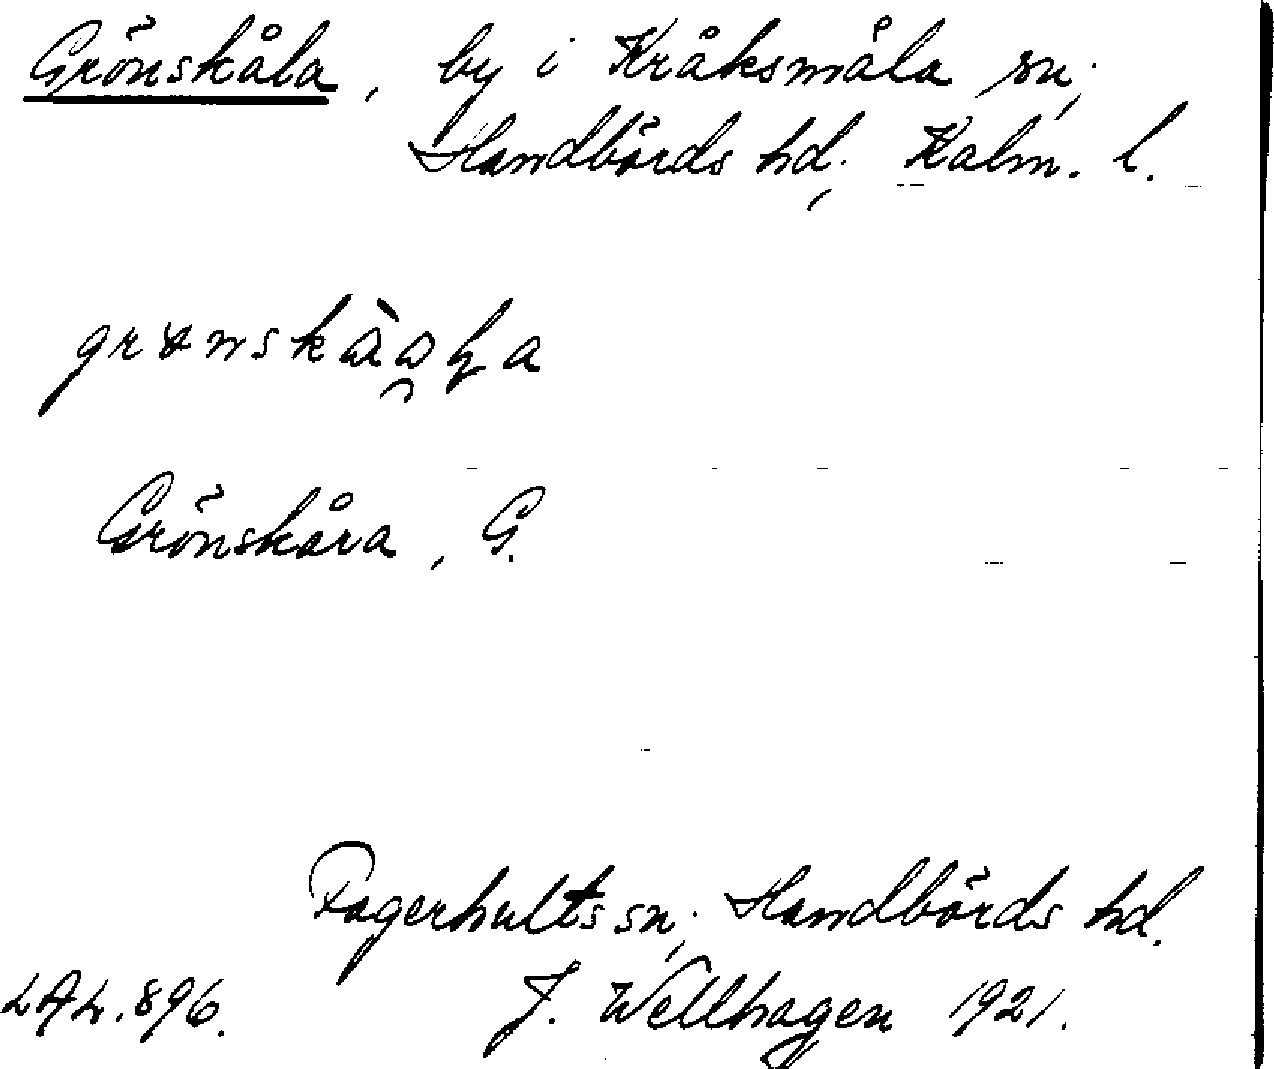 Grönskåla, by i Kråksmåla sn;
Handbörds hd; Kalm. l.
Grönskåra, G.
Fagerhults sn; Handbörds hd.
LAL. 896. J. Wellhagen 1921.